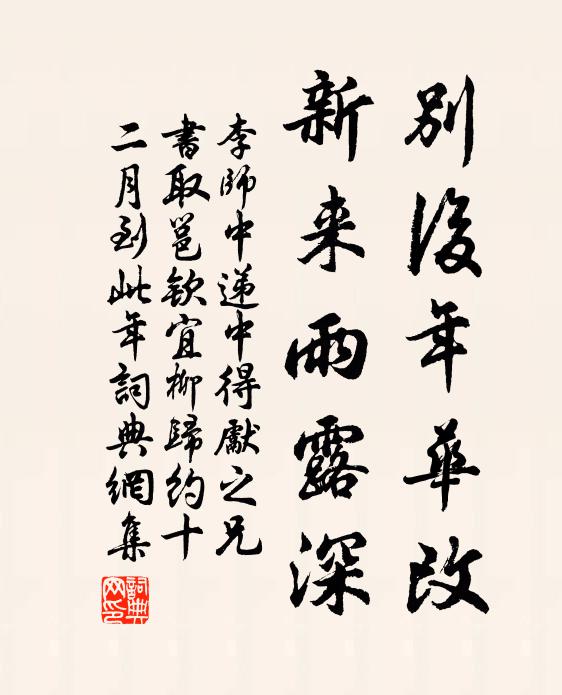 別後年華改
新来雨露深
李師中遞中得獻之兄
書取邕欽宜柳歸約十
二月到此年詞典網集
詞典網印